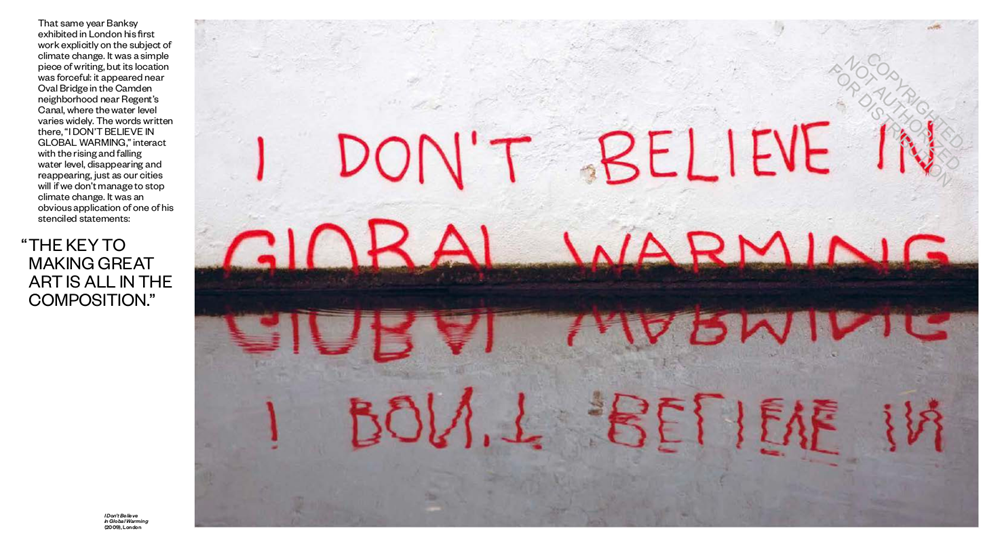 That same year Banksy
exhibited in London his first
work explicitly on the subject of
climate change. It was a simple
piece of writing, but its location
was forceful: it appeared near
Oval Bridge in the Camden
neighborhood near Regent's
Canal, where the water level
varies widely. The words written
there, "I DON'T BELIEVE IN
GLOBAL WARMING," interact
with the rising and falling
water level, disappearing and
reappearing, just as our cities
will if we don't manage to stop
climate change. It was an
obvious application of one of his
stenciled statements:
"THE KEY TO
MAKING GREAT
ART IS ALL IN THE
COMPOSITION."
I Don't Believe
in Global Warming
(2009), London
I DON'T BELIEVE IN
GLOBAL WARMING
COPYRIGHTED
NOT AUTHORIZED
FOR DISTRIBUTION